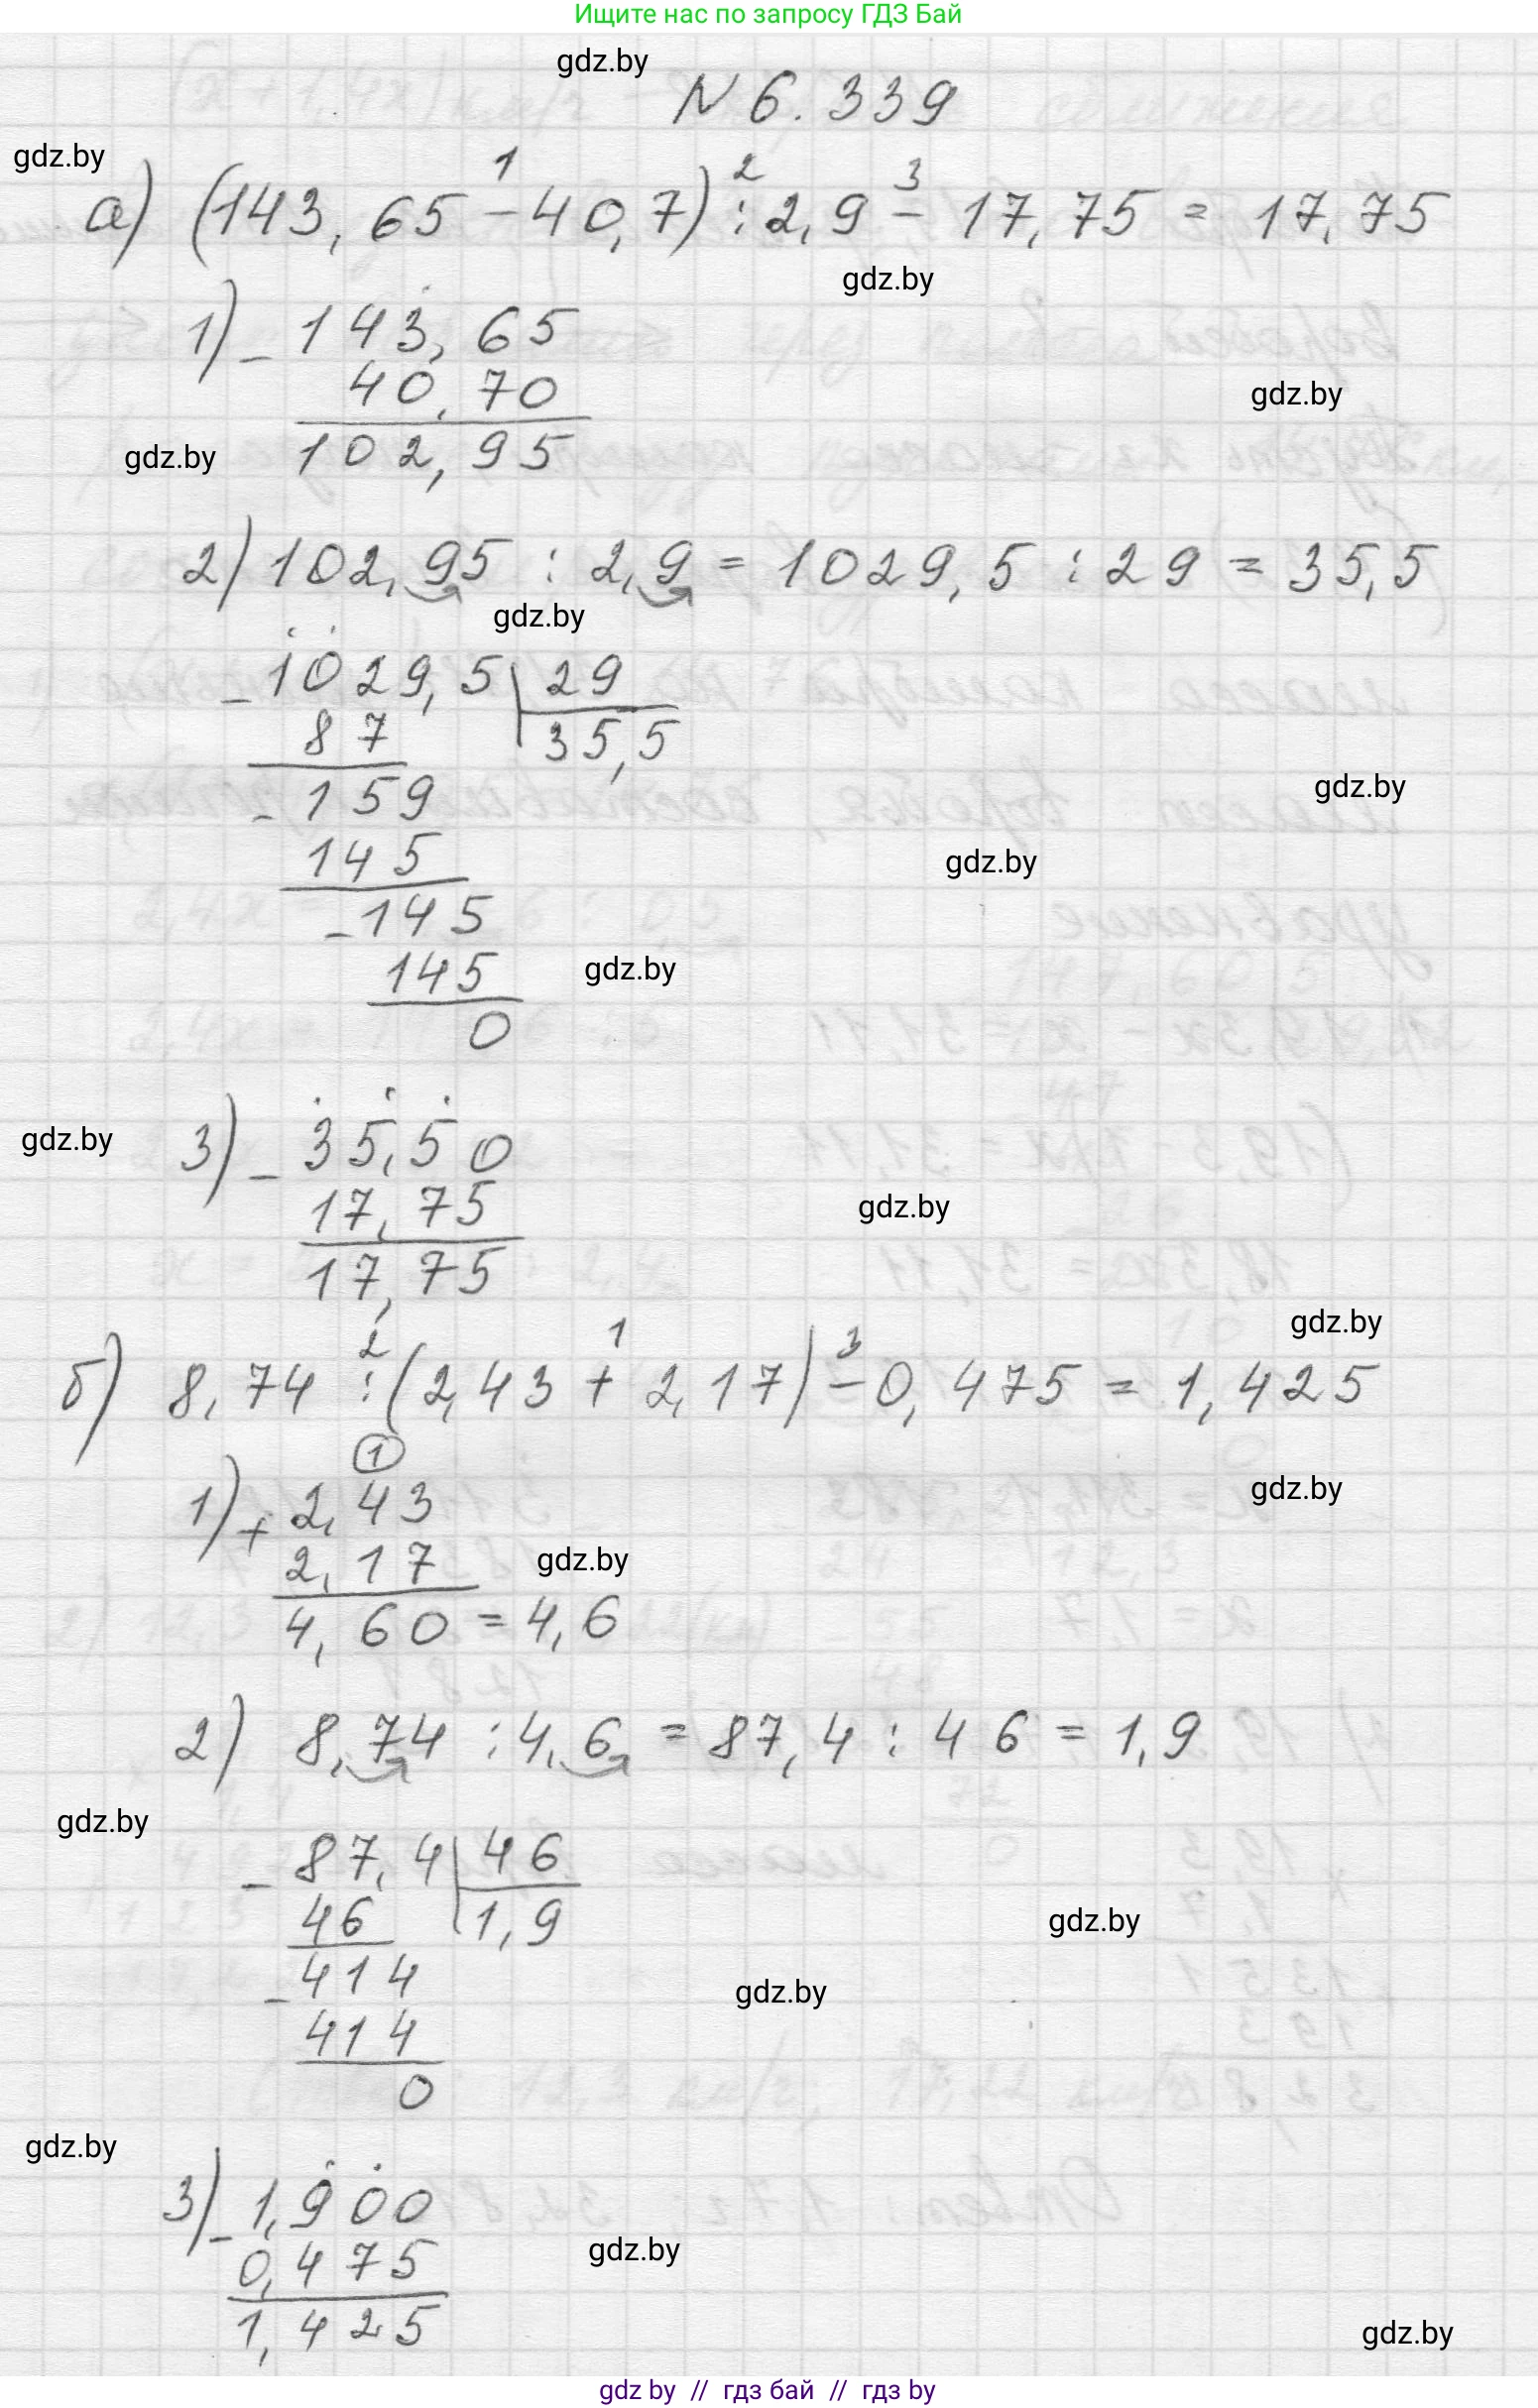 Ищите нас по запросу ГДЗ Бай
gdz.by
N 6.339
gdz.by
1 2 3
а) (143,65 - 40,7) : 2,9 - 17,75 = 17,75
gdz.by
1) - 143,65
40,70
gdz.by
102,95
gdz.by
2) 102,95 : 2,9 = 1029,5 : 29 = 35,5
gdz.by
- 1029,5 | 29
87 35,5
- 159
gdz.by
145
gdz.by
- 145
145
gdz.by
0
3) - 35,50
gdz.by
17,75
gdz.by
17,75
gdz.by
2 1 3
б) 8,74 : (2,43 + 2,17) - 0,475 = 1,425
1
1) + 2,43
gdz.by
2,17
gdz.by
4,60 = 4,6
2) 8,74 : 4,6 = 87,4 : 46 = 1,9
gdz.by
- 87,4 | 46
46 1,9
gdz.by
- 414
gdz.by
414
0
gdz.by
3) - 1,900
0,475
gdz.by
1,425
gdz.by
gdz by // гдз бай // гдз by